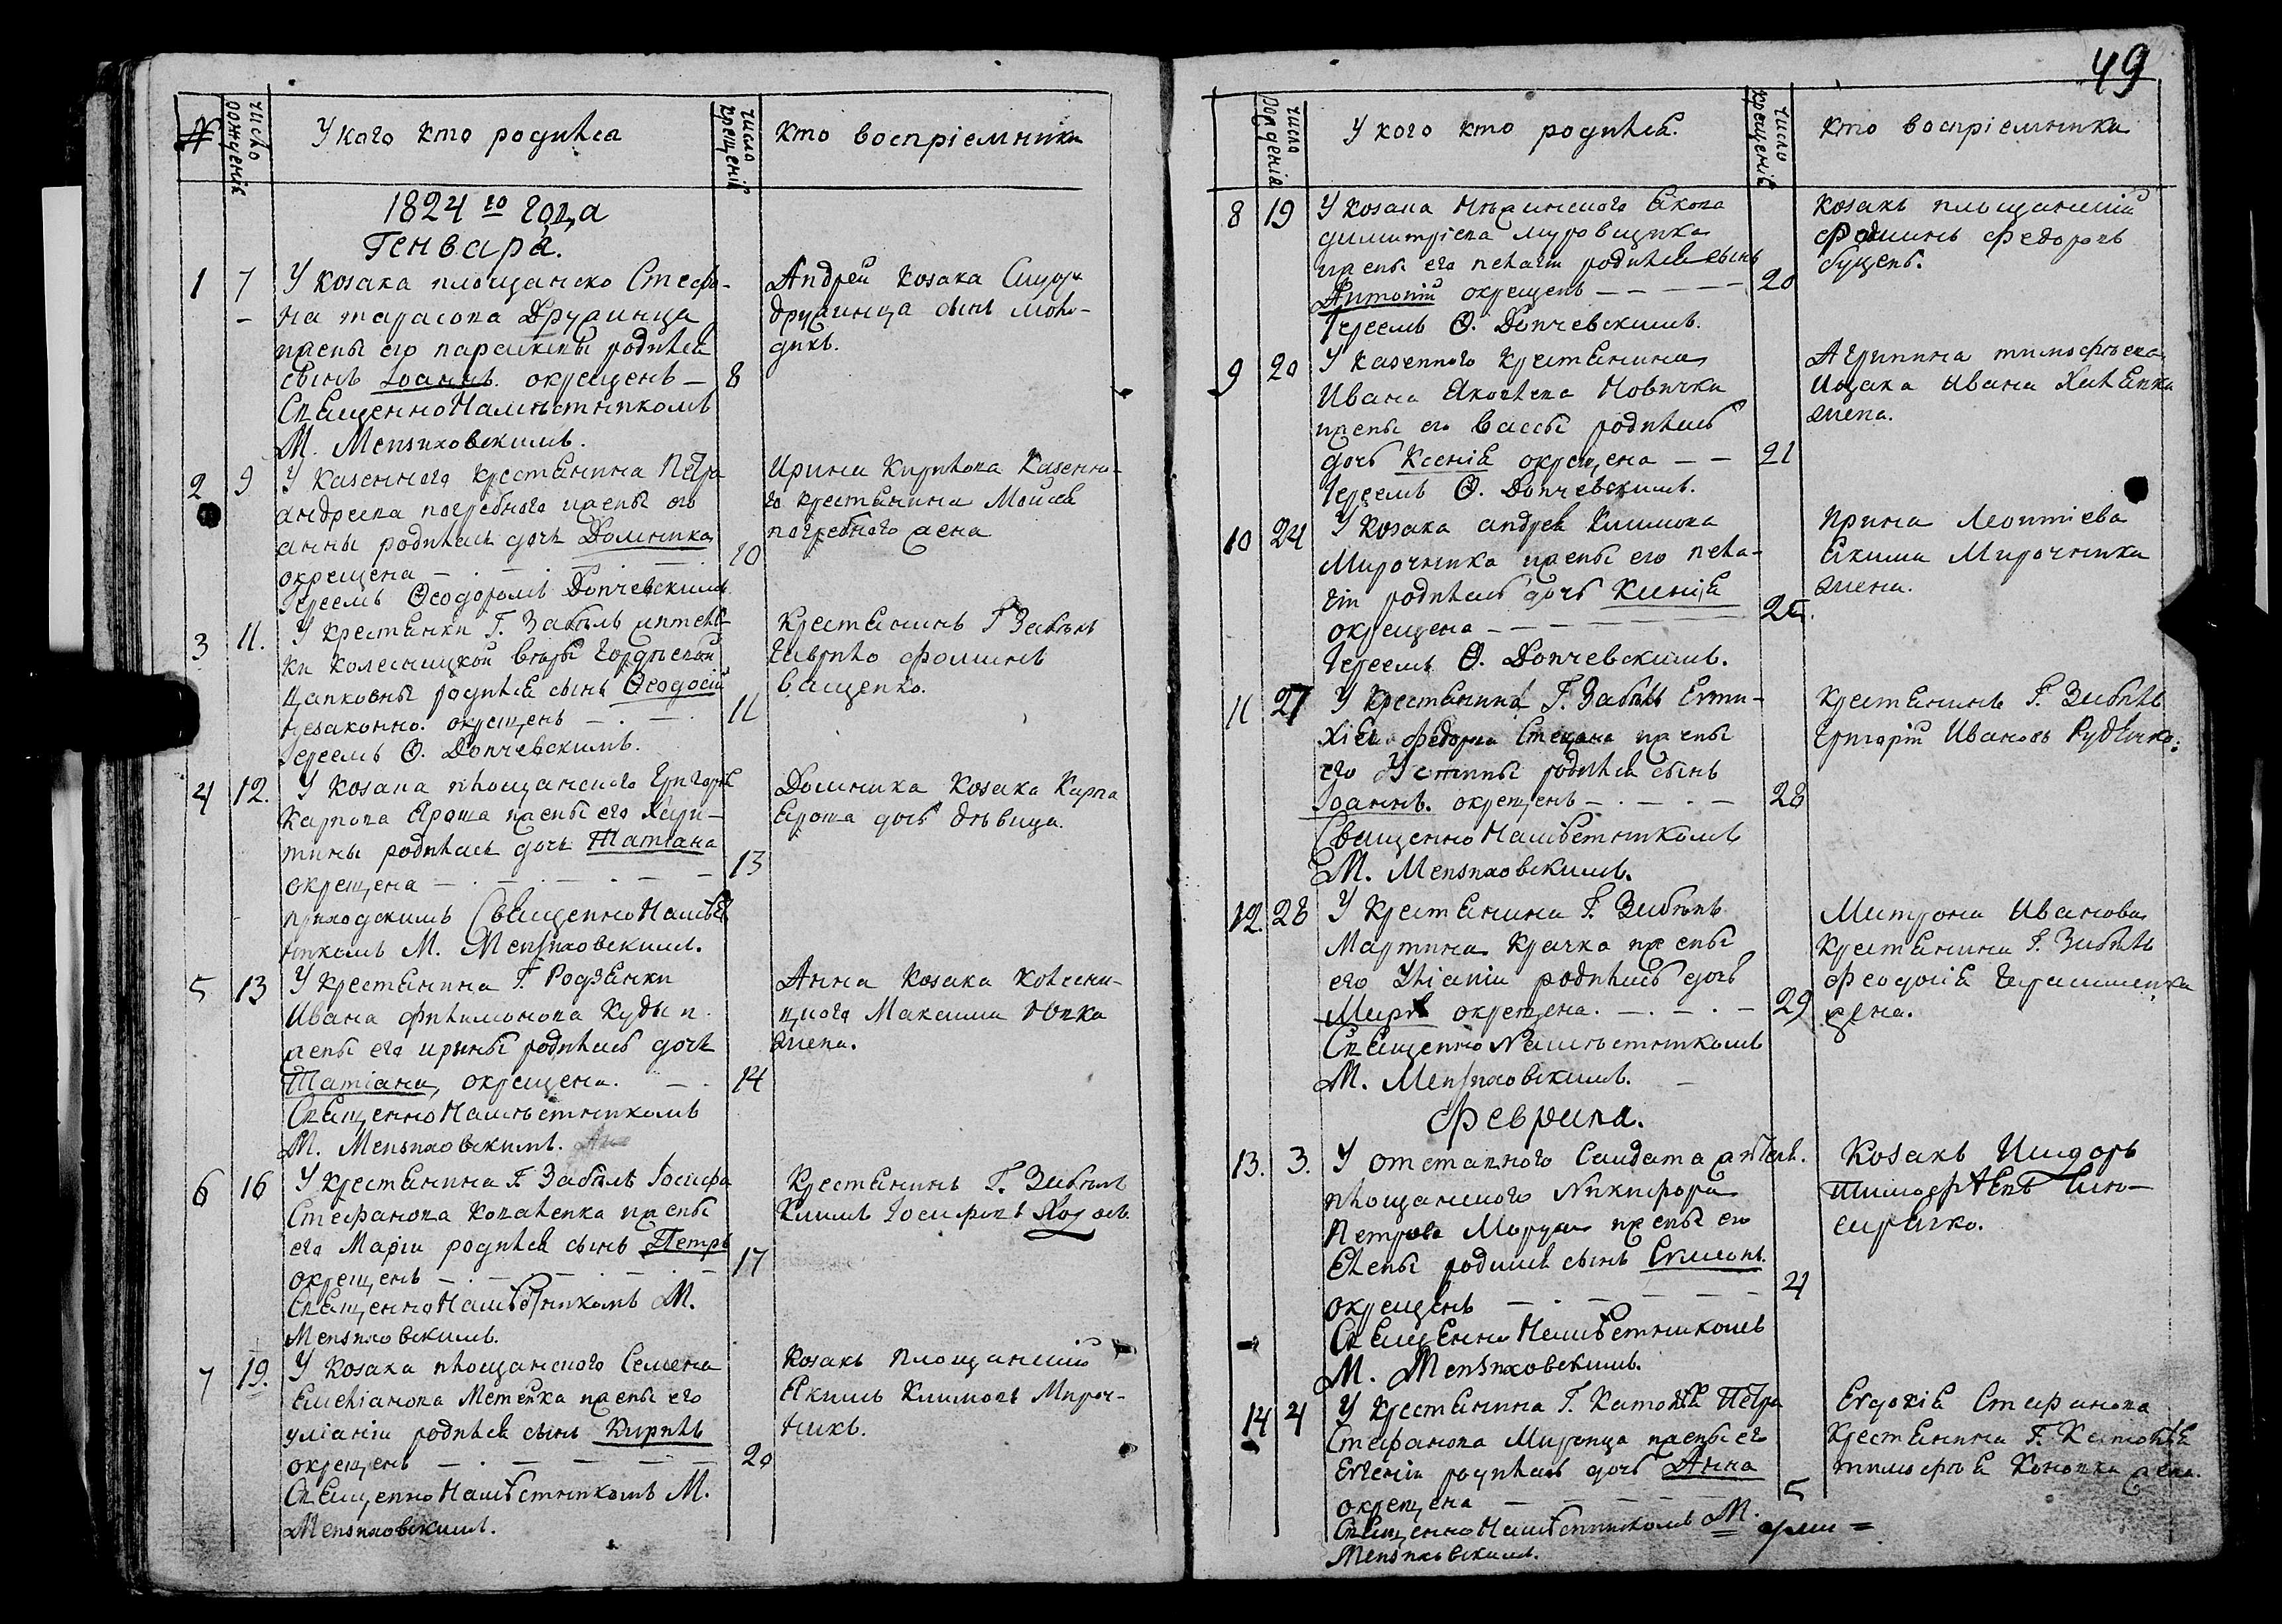 49
№
число рожденія
У кого кто родился
число крещенія
Кто воспріемники
1824го года
Генваря.
1 7 У козака площанско Стефа-
на тарасова Дружинца
жены его параскевы родился
сынъ Іоаннъ. окрещенъ — 8
СвященноНамѣстникомъ
М. Мензиховскимъ.
Андрей козака Сидора
дружинца сынъ моло-
дикъ.
2 9 У казенного крестьянина Петра
андреева погребного жены его
анны родилась дочь Домникa
окрещена — 10
Іереемъ Ѳеодоромъ Допчевскимъ
Ирина Кирилова Казенно-
го крестьянина Моисея
погребного жена
3 11. У крестьянки Г. Забѣлъ
колесницкой вѣры Гордѣевой
Цапковны родился сынъ Ѳеодосій
незаконно. окрещенъ — 11
Іереемъ Ѳ. Допчевскимъ.
Крестьянинъ Г Забѣлъ
Гаврило фоминъ
Ващенко.
4 12. У козака площанского Григорія
Карпова Яроша жены его Хари-
тины родилась дочь Татіана
окрещена — 13
приходскимъ СвященноНамѣст
никомъ М. Мензиховскимъ.
Домника Козака Карпа
Яроша дочь дѣвица.
5 13 У крестьянина Г. Родзянки
Ивана филимонова Кудын
жены его ирины родилась дочь
Татіана, окрещена. — 14
СвященноНамѣстникомъ
М. Мензиховскимъ.
Анна козака
Максима
жена.
6 16 У крестьянина Г. Забѣлъ Іосифа
Стефанова Коваленка жены
его Маріи родился сынъ Петръ
окрещенъ — 17
СвященноНамѣстникомъ М.
Мензиховскимъ.
Крестьянинъ Г. Забѣлъ
Климъ Іосифовъ
7 19. У козака площанского Семена
Емельянова Метелка жены его
уліаніи родился сынъ Кирилъ
окрещенъ — 20
СвященноНамѣстникомъ М.
Мензиховскимъ.
Козакъ площанскій
Якимъ Климовъ Мироч-
никъ.
число рожденія
У кого кто родился.
число крещенія
Кто воспріемники
8 19 У козака Нѣжинского Якова
димитріева муровщика
жены его пелагіи родился сынъ
Антоній окрещенъ — 20
Іереемъ Ѳ. Допчевскимъ.
Козакъ площанскій
федоровъ
Буценъ.
9 20 У казенного крестьянина
Ивана Яковлева Новичка
жены его Вассы родилась
дочь Ксенія окрещена — — 21
Іереемъ Ѳ. Допчевскимъ.
Агрипина тимофѣева
Ивана
жена.
10 24 У козака андрея Климова
Мирочника жены его пела-
гіи родилась дочь Ксенія
окрещена — 25.
Іереемъ Ѳ. Допчевскимъ.
Ирина Леонтіева
Якима Мирочника
жена.
11 27 У крестьянина Г. Забѣлъ Евти-
хія федорова Стецана жены
его Устины родился сынъ
Іоаннъ. окрещенъ — 28
СвященноНамѣстникомъ
М. Мензиховскимъ.
Крестьянинъ Г. Забѣлъ
Григорій Ивановъ Рудычко.
12. 28 У крестьянина Г. Забѣлъ
Мартина Крачка жены
его Уліаніи родилась дочь
Марѳа окрещена. — 29
СвященноНамѣстникомъ
М. Мензиховскимъ.
Матрона Иванова
крестьянина Г. Забѣлъ
феодосія Герасименка
жена.
Февраля.
13. 3. У отставного Салдата жител.
площанского Никифора
Петрова Моруга жены его
Елены родился сынъ Симеонъ
окрещенъ — 4
СвященноНамѣстникомъ
М. Мензиховскимъ.
Козакъ Исидоръ
Тимофѣевъ
14 4 У крестьянина Г. Петра
Стефанова жены его
Евгеніи родилась дочь Анна
окрещена — 5
СвященноНамѣстникомъ М.
Мензиховскимъ.
Евдокія Стефанова
крестьянина Г.
тимофѣя Конопка жена.